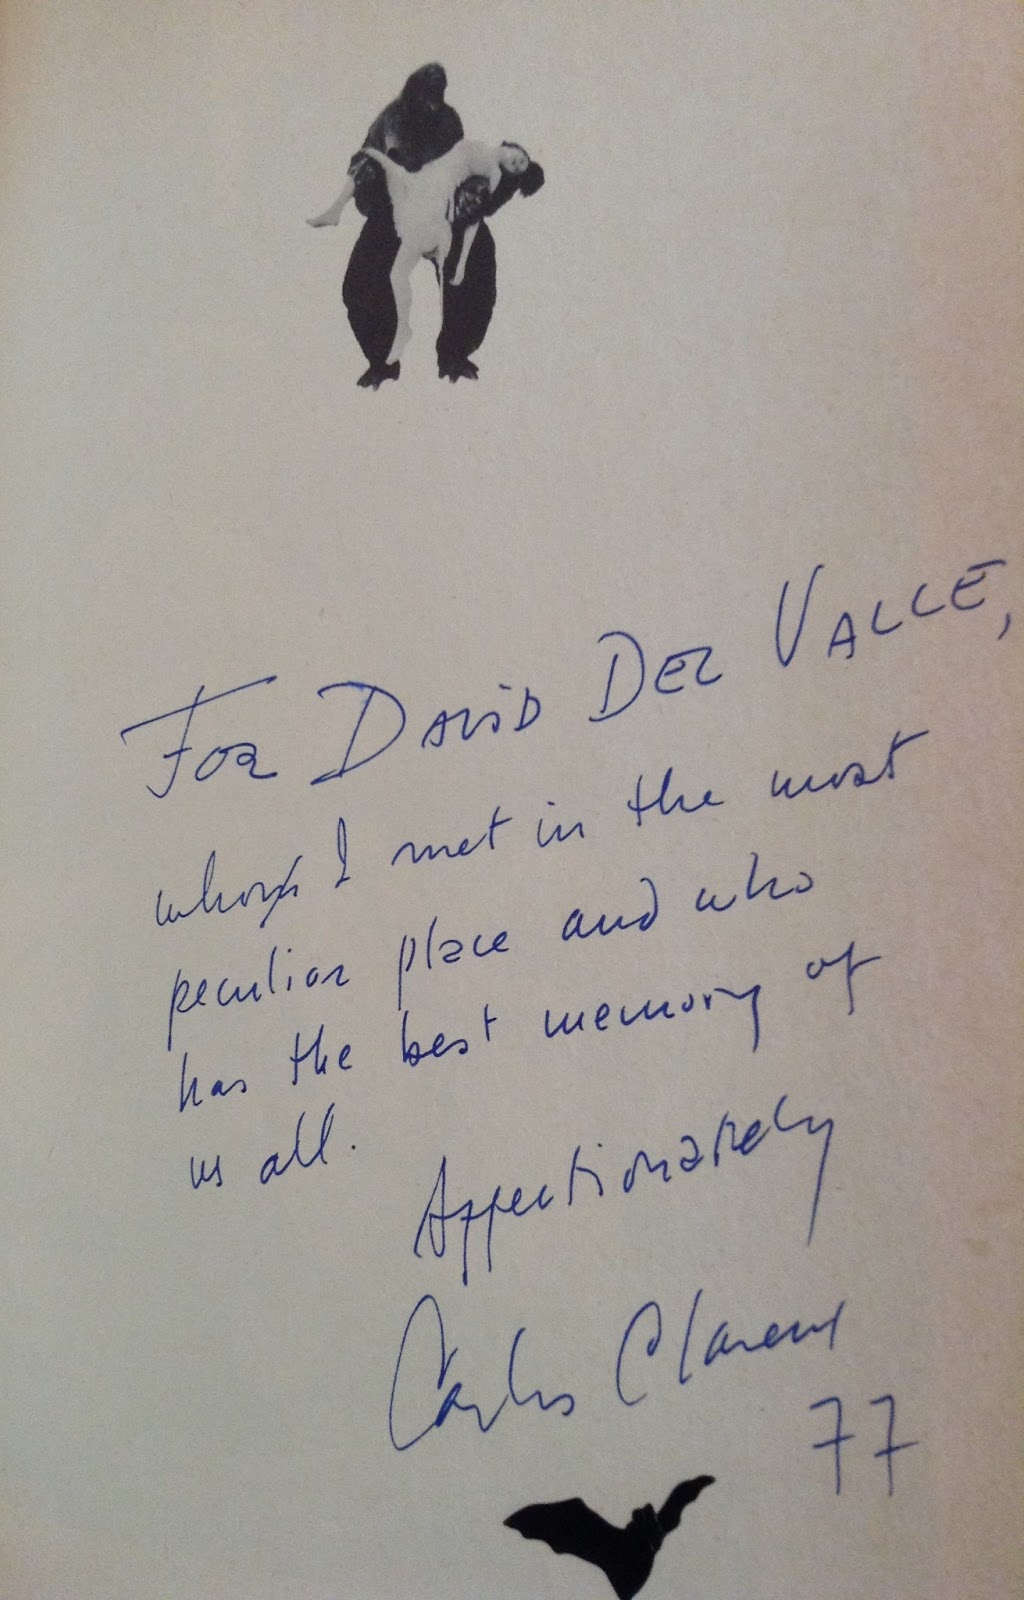 FOR DAVID DEL VALLE,
whom I met in the most
peculiar place and who
has the best memory of
us all.
Affectionately
Carlos Clarens
77